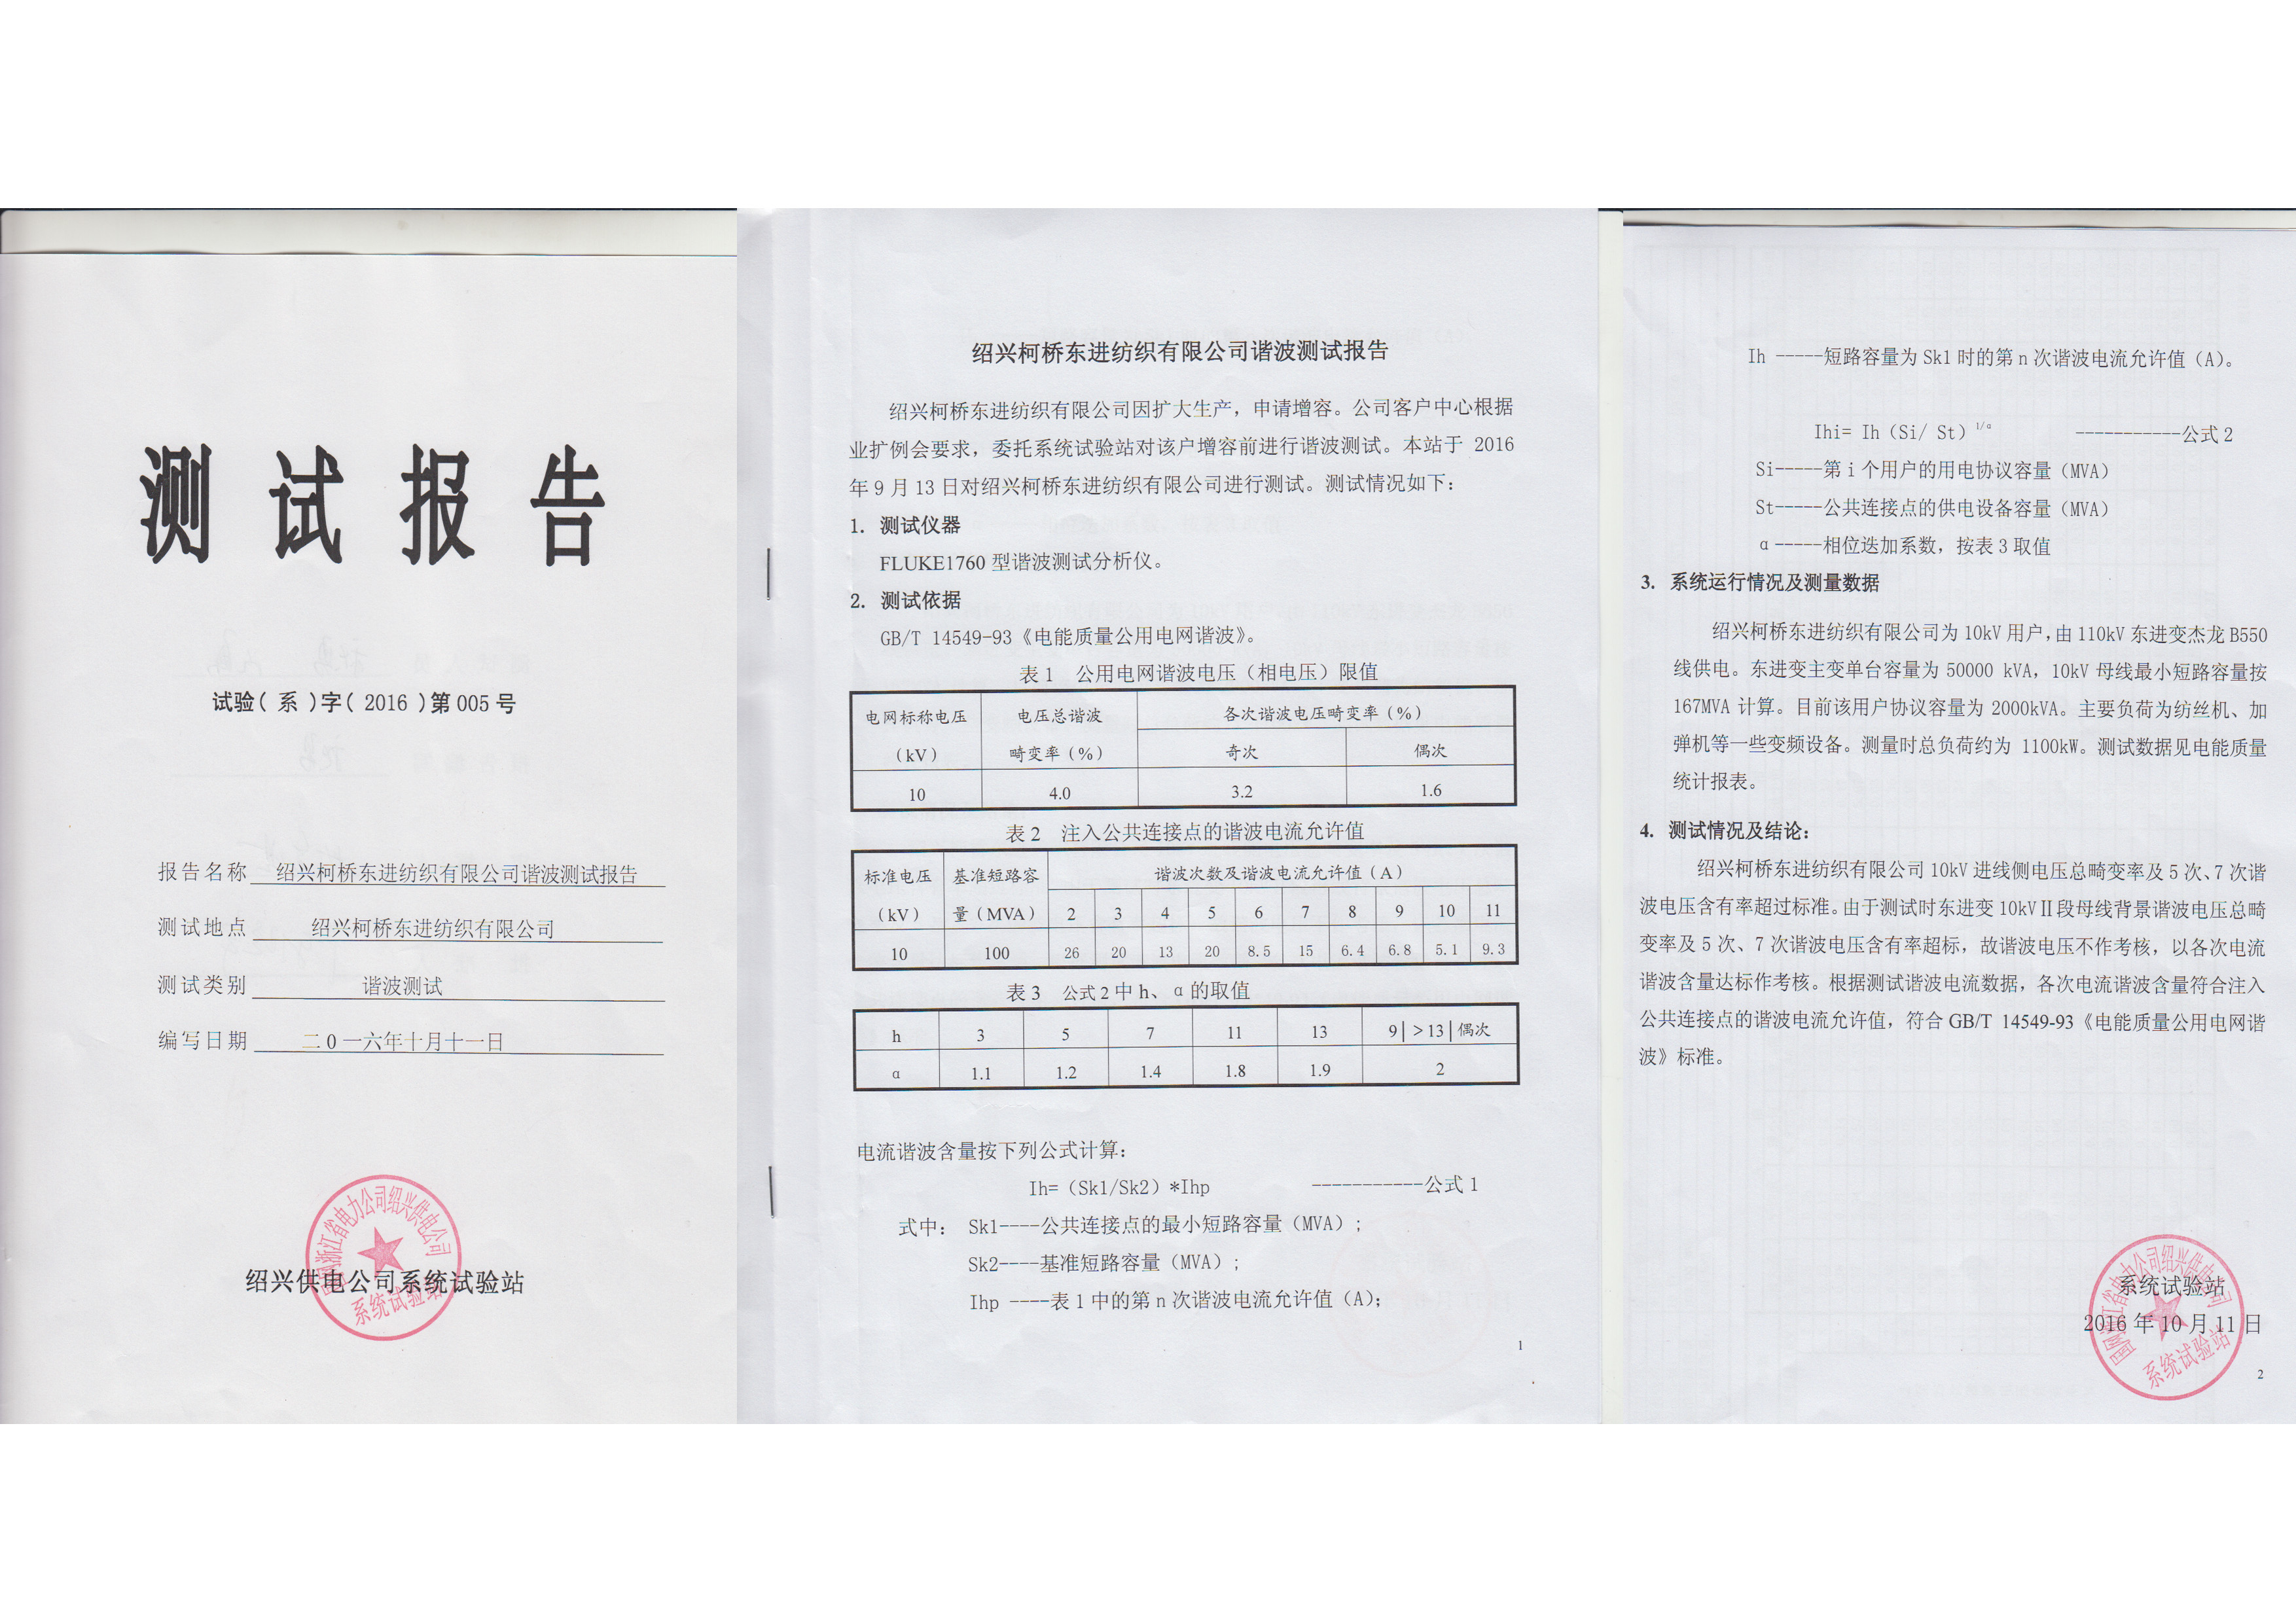 测试报告
试验（ 系 ）字（ 2016 ）第 005 号
报告名称 绍兴柯桥东进纺织有限公司谐波测试报告
测试地点 绍兴柯桥东进纺织有限公司
测试类别 谐波测试
编写日期 二0一六年十月十一日
绍兴供电公司系统试验站
国网浙江省电力公司绍兴供电公司
系统试验站
绍兴柯桥东进纺织有限公司谐波测试报告
绍兴柯桥东进纺织有限公司因扩大生产，申请增容。公司客户中心根据
业扩例会要求，委托系统试验站对该户增容前进行谐波测试。本站于 2016
年 9 月 13 日对绍兴柯桥东进纺织有限公司进行测试。测试情况如下：
1. 测试仪器
FLUKE1760 型谐波测试分析仪。
2. 测试依据
GB/T 14549-93《电能质量公用电网谐波》。
表 1 公用电网谐波电压（相电压）限值
电网标称电压 电压总谐波 各次谐波电压畸变率（%）
（kV） 畸变率（%） 奇次 偶次
10 4.0 3.2 1.6
表 2 注入公共连接点的谐波电流允许值
标准电压 基准短路容 谐波次数及谐波电流允许值（A）
（kV） 量（MVA） 2 3 4 5 6 7 8 9 10 11
10 100 26 20 13 20 8.5 15 6.4 6.8 5.1 9.3
表 3 公式 2 中 h、α 的取值
h 3 5 7 11 13 9|＞13|偶次
α 1.1 1.2 1.4 1.8 1.9 2
电流谐波含量按下列公式计算：
Ih=（Sk1/Sk2）*Ihp -----------公式 1
式中： Sk1----公共连接点的最小短路容量（MVA）；
Sk2----基准短路容量（MVA）；
Ihp ----表 1 中的第 n 次谐波电流允许值（A）；
1
Ih -----短路容量为 Sk1 时的第 n 次谐波电流允许值（A）。
Ihi= Ih（Si/ St）1/α -----------公式 2
Si-----第 i 个用户的用电协议容量（MVA）
St-----公共连接点的供电设备容量（MVA）
α-----相位迭加系数，按表 3 取值
3. 系统运行情况及测量数据
绍兴柯桥东进纺织有限公司为 10kV 用户，由 110kV 东进变杰龙 B550
线供电。东进变主变单台容量为 50000 kVA，10kV 母线最小短路容量按
167MVA 计算。目前该用户协议容量为 2000kVA。主要负荷为纺丝机、加
弹机等一些变频设备。测量时总负荷约为 1100kW。测试数据见电能质量
统计报表。
4. 测试情况及结论：
绍兴柯桥东进纺织有限公司 10kV 进线侧电压总畸变率及 5 次、7 次谐
波电压含有率超过标准。由于测试时东进变 10kVⅡ段母线背景谐波电压总畸
变率及 5 次、7 次谐波电压含有率超标，故谐波电压不作考核，以各次电流
谐波含量达标作考核。根据测试谐波电流数据，各次电流谐波含量符合注入
公共连接点的谐波电流允许值，符合 GB/T 14549-93《电能质量公用电网谐
波》标准。
系统试验站
2016 年 10 月 11 日
国网浙江省电力公司绍兴供电公司
系统试验站
2